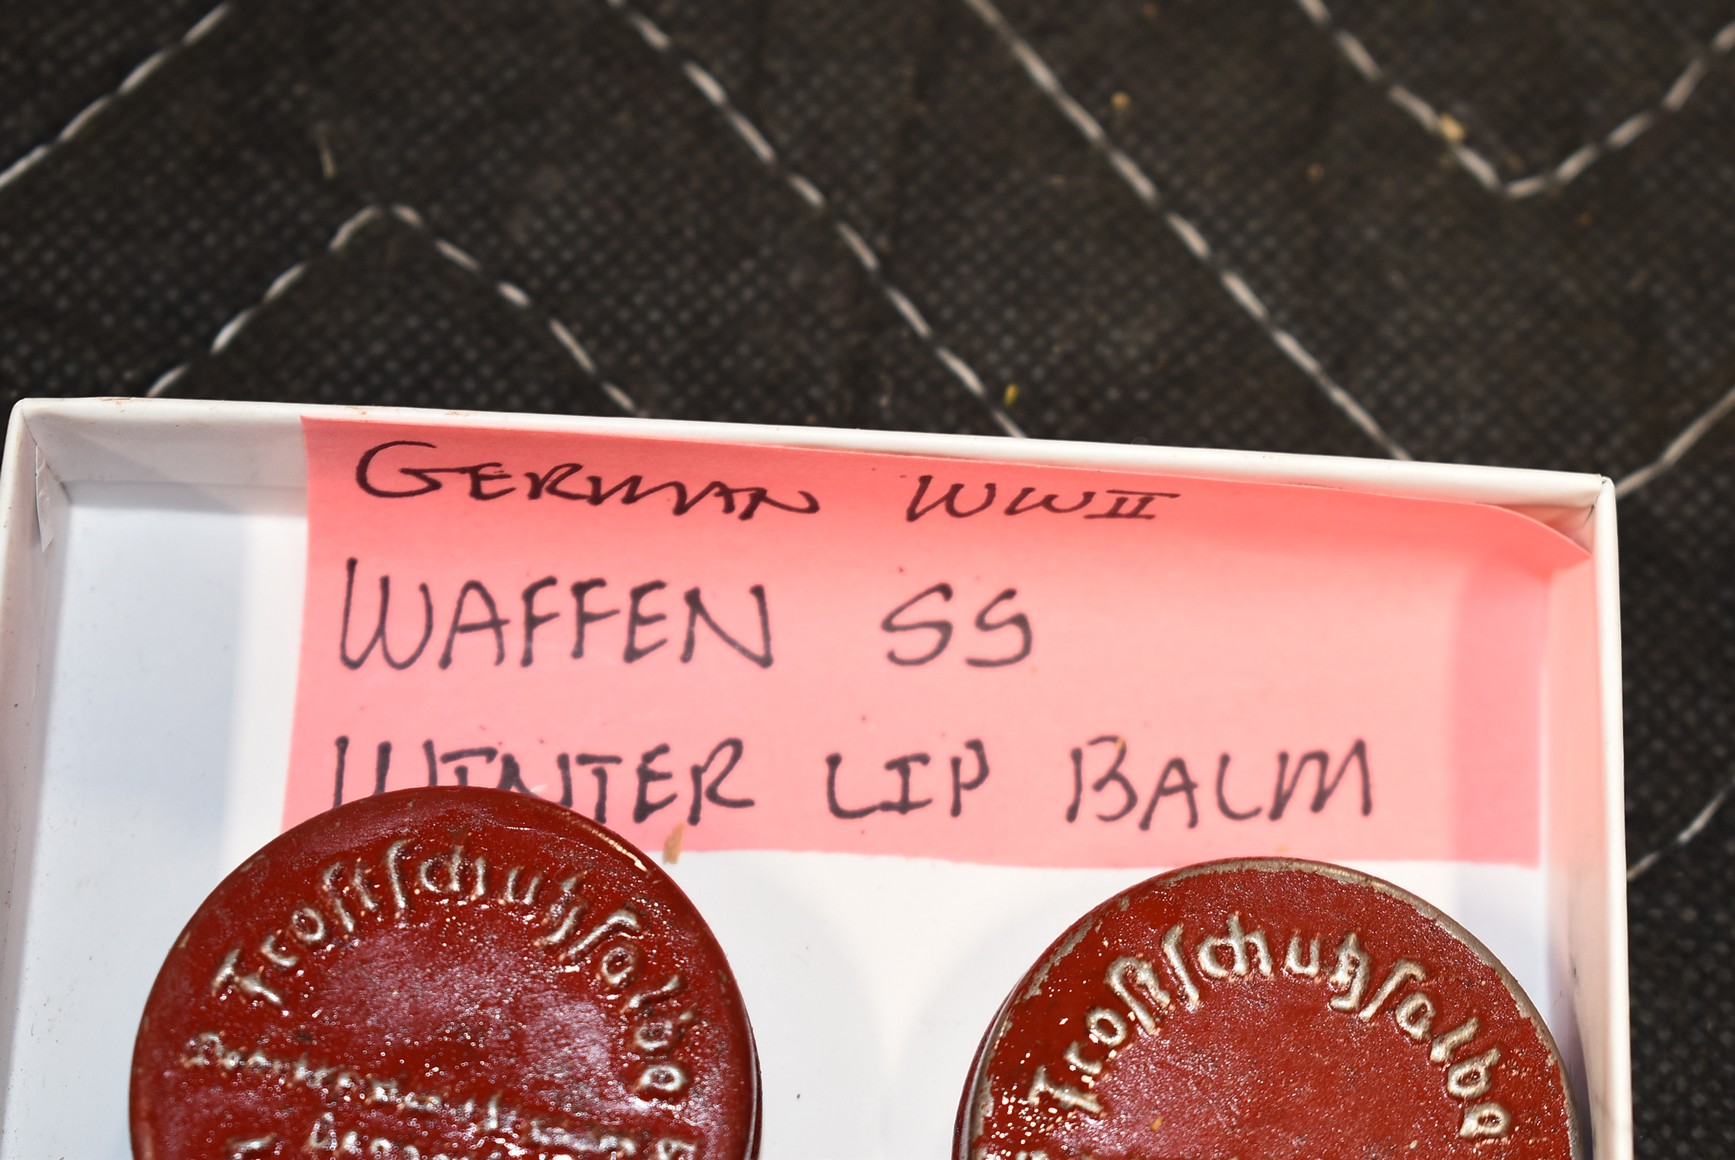 GERMAN WWII
WAFFEN SS
WINTER LIP BALM
Froſtſchutzſalbe
Froſtſchutzſalbe